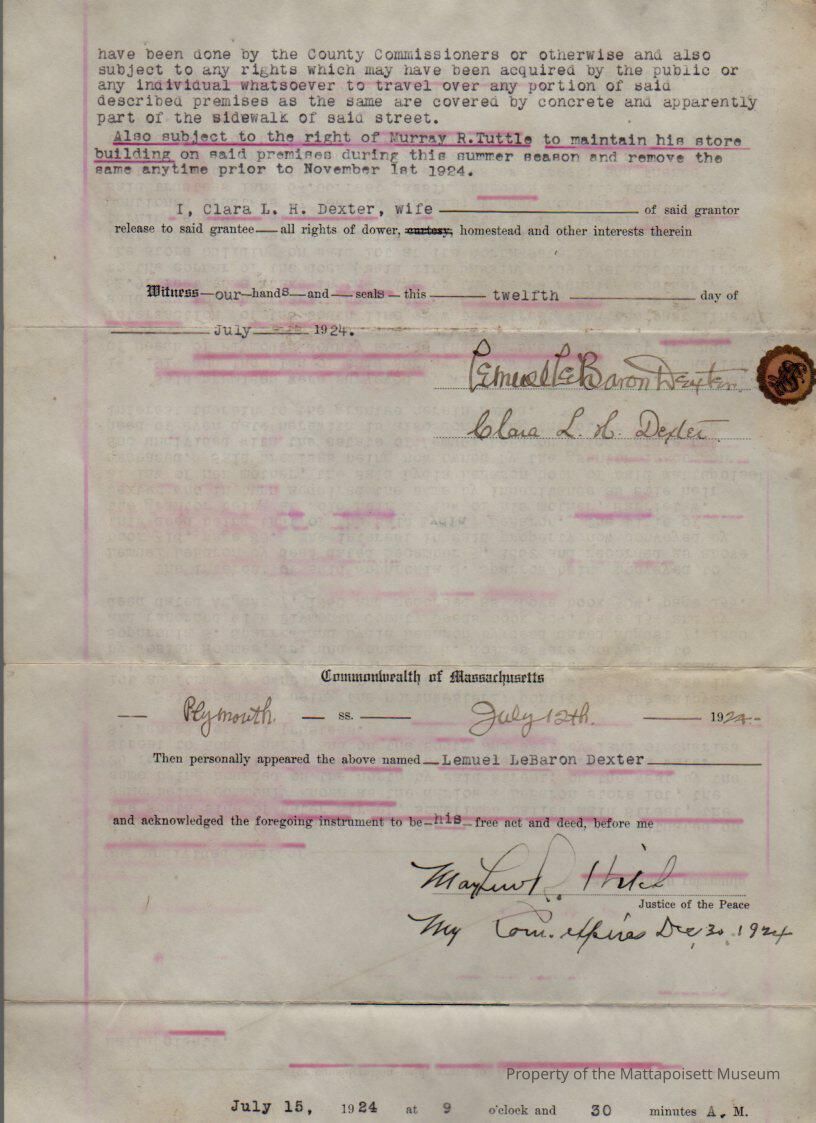 have been done by the County Commissioners or otherwise and also
subject to any rights which may have been acquired by the public or
any individual whatsoever to travel over any portion of said
described premises as the same are covered by concrete and apparently
part of the sidewalk of said street.
Also subject to the right of Murray R.Tuttle to maintain his store
building on said premises during this summer season and remove the
same anytime prior to November 1st 1924.
I, Clara L. H. Dexter, wife of said grantor
release to said grantee all rights of dower, curtesy, homestead and other interests therein
Witness our hands and seals this twelfth day of
July 1924.
Lemuel LeBaron Dexter
Clara L. H. Dexter
Commonwealth of Massachusetts
Plymouth. ss. July 12th. 1924
Then personally appeared the above named Lemuel LeBaron Dexter
and acknowledged the foregoing instrument to be his free act and deed, before me
R. Hitch
Justice of the Peace
My Com. expires Dec 30, 1924
Property of the Mattapoisett Museum
July 15, 1924 at 9 o'clock and 30 minutes A. M.